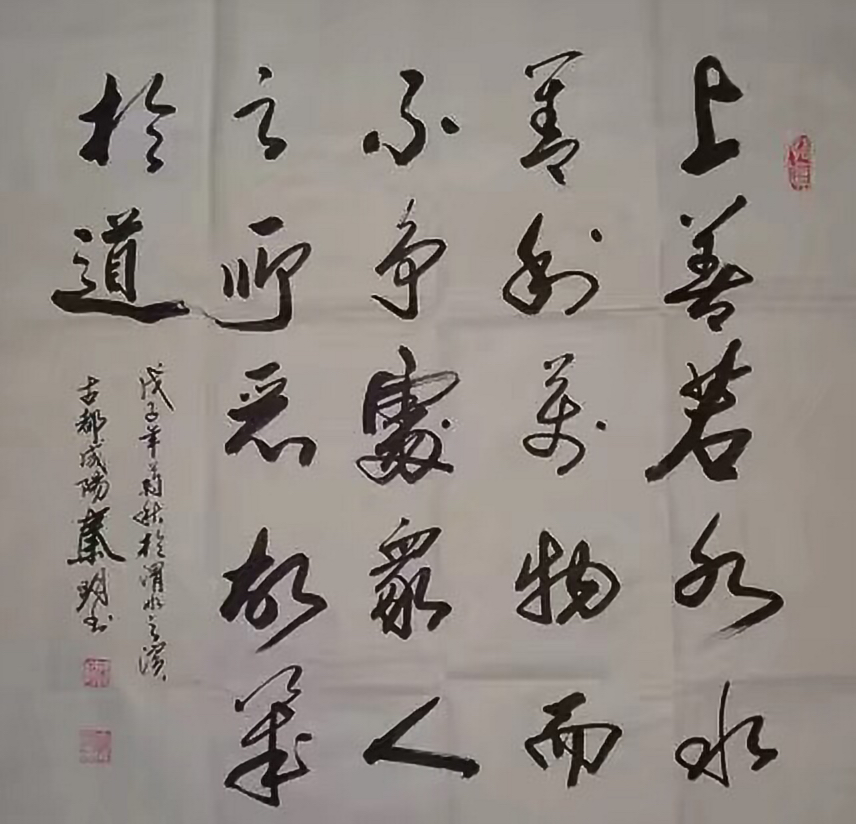 上善若水水
善利萬物而
不争處衆人
之所惡故幾
於道
戊子年菊秋於渭水之濱
古都咸陽秦書